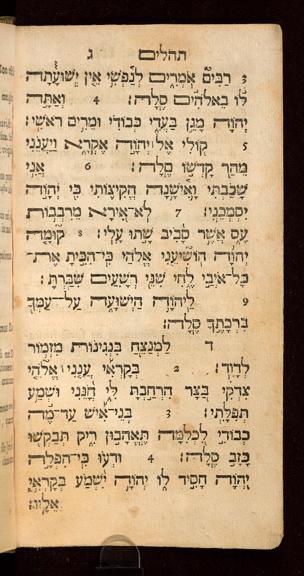 תהלים ג
3 רַבִּים אֹמְרִים לְנַפְשִׁי אֵין יְשׁוּעָתָה
לּוֹ בֵאלֹהִים סֶלָה: 4 וְאַתָּה
יְהוָה מָגֵן בַּעֲדִי כְּבוֹדִי וּמֵרִים רֹאשִׁי:
5 קוֹלִי אֶל־יְהוָה אֶקְרָא וַיַּעֲנֵנִי
מֵהַר קָדְשׁוֹ סֶלָה: 6 אֲנִי
שָׁכַבְתִּי וָאִישָׁנָה הֱקִיצוֹתִי כִּי יְהוָה
יִסְמְכֵנִי: 7 לֹא־אִירָא מֵרִבְבוֹת
עָם אֲשֶׁר סָבִיב שָׁתוּ עָלָי: 8 קוּמָה
יְהוָה הוֹשִׁיעֵנִי אֱלֹהַי כִּי־הִכִּיתָ אֶת־
כָּל־אֹיְבַי לֶחִי שִׁנֵּי רְשָׁעִים שִׁבַּרְתָּ:
9 לַיהוָה הַיְשׁוּעָה עַל־עַמְּךָ
בִרְכָתֶךָ סֶּלָה:
ד לַמְנַצֵּחַ בִּנְגִינוֹת מִזְמוֹר
לְדָוִד: 2 בְּקָרְאִי עֲנֵנִי אֱלֹהֵי
צִדְקִי בַּצָּר הִרְחַבְתָּ לִּי חָנֵּנִי וּשְׁמַע
תְּפִלָּתִי: 3 בְּנֵי־אִישׁ עַד־מֶה
כְבוֹדִי לִכְלִמָּה תֶּאֱהָבוּן רִיק תְּבַקְשׁוּ
כָזָב סֶלָה: 4 וּדְעוּ כִּי־הִפְלָה
יְהוָה חָסִיד לוֹ יְהוָה יִשְׁמַע בְּקָרְאִי
אֵלָיו: